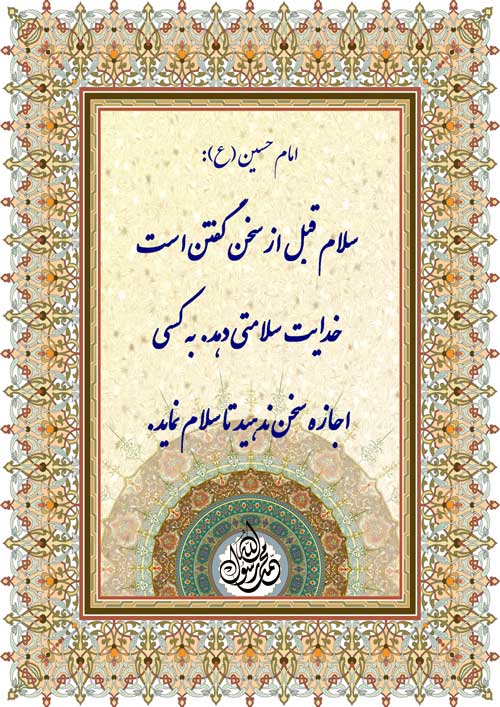 امام حسین (ع):
سلام قبل از سخن گفتن است
خدایت سلامتی دهد. به کسی
اجازه سخن ندهید تا سلام نماید.
محمد رسول الله